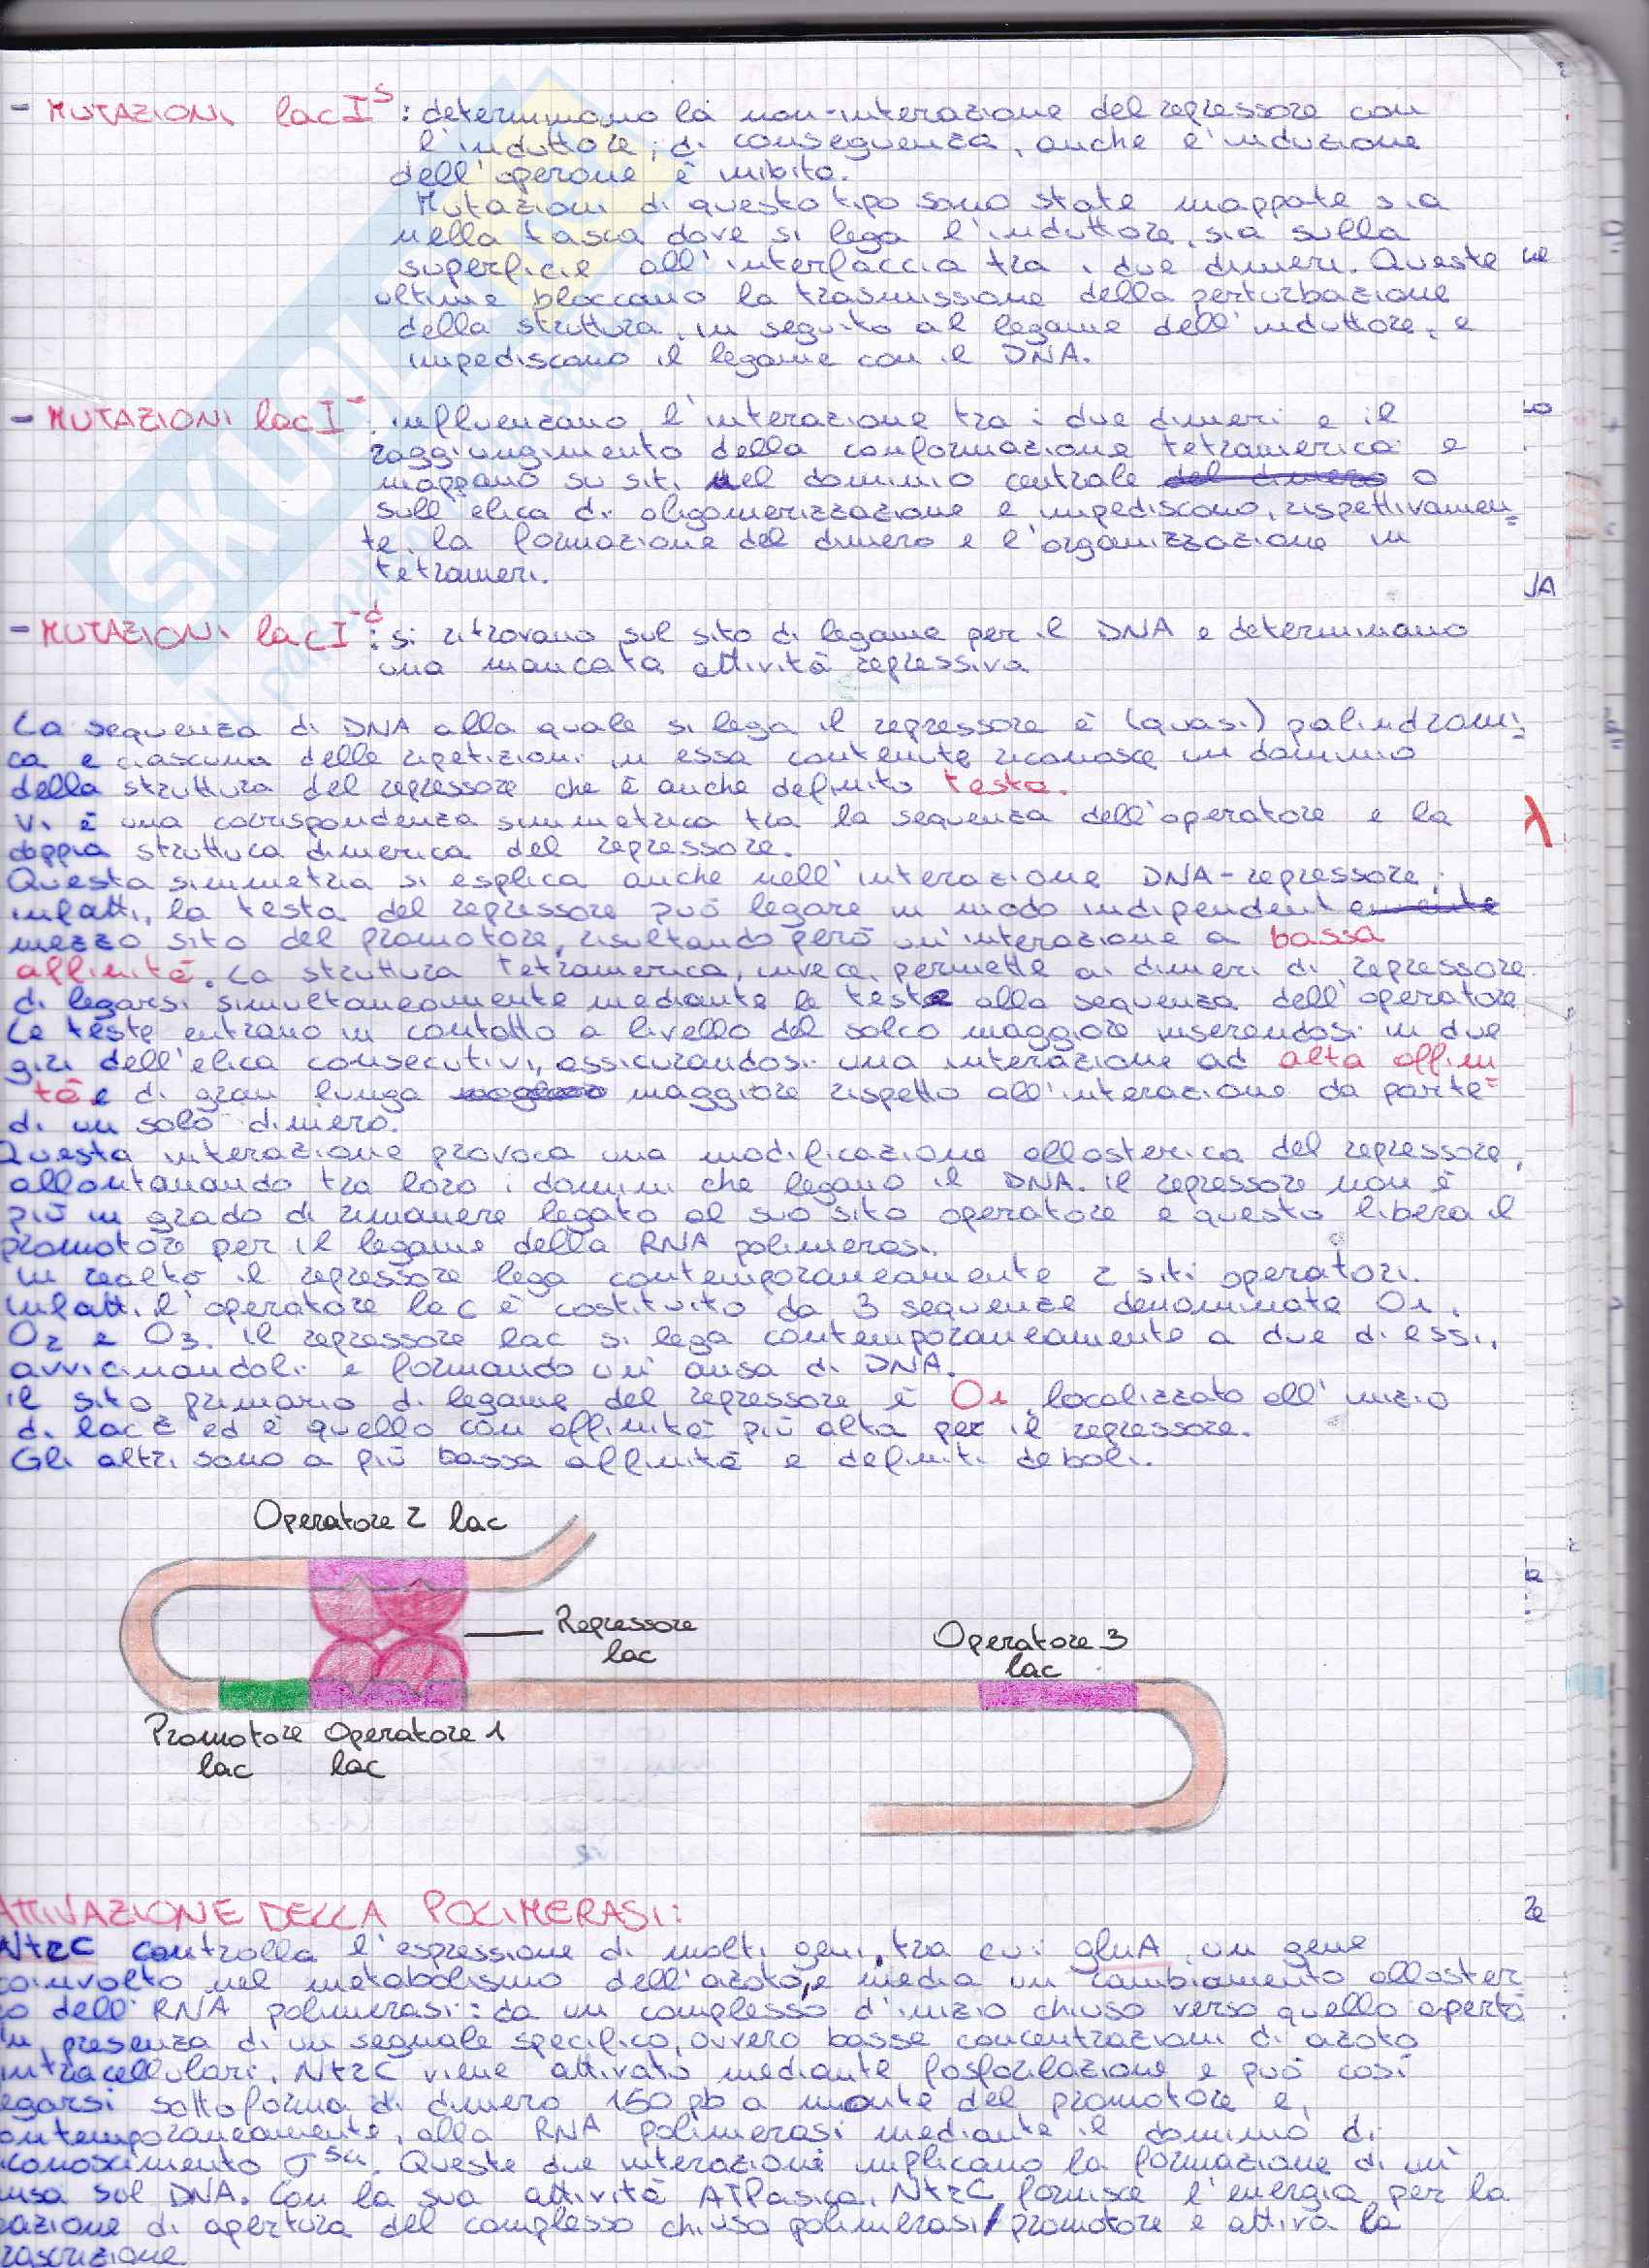 - MUTAZIONI lacI^s: determinano la non-interazione del repressore con
l'induttore; di conseguenza, anche l'induzione
dell'operone è inibita.
Mutazioni di questo tipo sono state mappate sia
nella tasca dove si lega l'induttore, sia sulla
superficie all'interfaccia tra i due dimeri. Queste
ultime bloccano la trasmissione della perturbazione
della struttura, in seguito al legame dell'induttore, e
impediscono il legame con il DNA.
- MUTAZIONI lacI^-: influenzano l'interazione tra i due dimeri e il
raggiungimento della conformazione tetramerica e
mappano su siti nel dominio centrale del dimero o
sull'elica di oligomerizzazione e impediscono, rispettivamen
te, la formazione del dimero e l'organizzazione in
tetrameri.
- MUTAZIONI lacI^-d: si ritrovano sul sito di legame per il DNA e determinano
una mancata attività repressiva
La sequenza di DNA alla quale si lega il repressore è (quasi) palindromi
ca e ciascuna delle ripetizioni in essa contenute riconosce un dominio
della struttura del repressore che è anche definito testa.
Vi è una corrispondenza simmetrica tra la sequenza dell'operatore e la
doppia struttura dimerica del repressore.
Questa simmetria si esplica anche nell'interazione DNA-repressore;
infatti, la testa del repressore può legare in modo indipendentemente
mezzo sito del promotore, risultando però un'interazione a bassa
affinità. La struttura tetramerica, invece, permette ai dimeri di repressore
di legarsi simultaneamente mediante le teste alla sequenza dell'operatore
Le teste entrano in contatto a livello del solco maggiore inserendosi in due
giri dell'elica consecutivi, assicurandosi una interazione ad alta affini
tà e di gran lunga maggiore rispetto all'interazione da parte
di un solo dimero.
Questa interazione provoca una modificazione allosterica del repressore,
allontanando tra loro i domini che legano il DNA. Il repressore non è
più in grado di rimanere legato al suo sito operatore e questo libera il
promotore per il legame della RNA polimerasi.
In realtà il repressore lega contemporaneamente 2 siti operatori.
Infatti l'operatore lac è costituito da 3 sequenze denominate O1,
O2 e O3. Il repressore lac si lega contemporaneamente a due di essi,
avvicinandoli e formando un'ansa di DNA.
Il sito primario di legame del repressore è O1 localizzato all'inizio
di lacZ ed è quello con affinità più alta per il repressore.
Gli altri sono a più bassa affinità e definiti deboli.
Operatore 2 lac
Repressore
lac
Operatore 3
lac
Promotore
lac
Operatore 1
lac
ATTIVAZIONE DELLA POLIMERASI:
NtrC controlla l'espressione di molti geni, tra cui glnA, un gene
coinvolto nel metabolismo dell'azoto, e media un cambiamento alloster
co dell'RNA polimerasi: da un complesso d'inizio chiuso verso quello aperto
In presenza di un segnale specifico, ovvero basse concentrazioni di azoto
intracellulari, NtrC viene attivato mediante fosforilazione e può così
legarsi sottoforma di dimero 150 pb a monte del promotore e,
ontemporaneamente, alla RNA polimerasi mediante il dominio di
iconoscimento σ^54. Queste due interazioni implicano la formazione di un'
ansa sul DNA. Con la sua attività ATPasica, NtrC fornisce l'energia per la
eazione di apertura del complesso chiuso polimerasi/promotore e attiva la
rascrizione